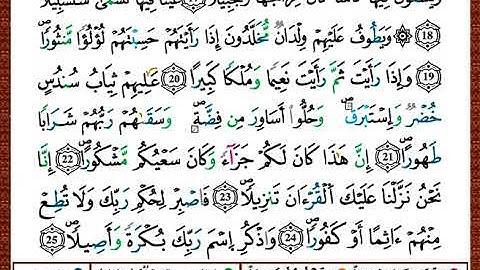 فِيهَا كَأْسًا كَانَ مِزَاجُهَا زَنجَبِيلًا عَيْنًا فِيهَا تُسَمَّىٰ سَلْسَبِيلًا
18 ۞ وَيَطُوفُ عَلَيْهِمْ وِلْدَٰنٌ مُّخَلَّدُونَ إِذَا رَأَيْتَهُمْ حَسِبْتَهُمْ لُؤْلُؤًا مَّنثُورًا
19 وَإِذَا رَأَيْتَ ثَمَّ رَأَيْتَ نَعِيمًا وَمُلْكًا كَبِيرًا 20 عَٰلِيهِمْ ثِيَابُ سُندُسٍ
خُضْرٌ وَإِسْتَبْرَقٌ وَحُلُّوٓا۟ أَسَاوِرَ مِن فِضَّةٍ وَسَقَىٰهُمْ رَبُّهُمْ شَرَابًا
طَهُورًا 21 إِنَّ هَٰذَا كَانَ لَكُمْ جَزَآءً وَكَانَ سَعْيُكُم مَّشْكُورًا 22 إِنَّا
نَحْنُ نَزَّلْنَا عَلَيْكَ ٱلْقُرْءَانَ تَنزِيلًا 23 فَاصْبِرْ لِحُكْمِ رَبِّكَ وَلَا تُطِعْ
مِنْهُمْ ءَاثِمًا أَوْ كَفُورًا 24 وَاذْكُرِ اسْمَ رَبِّكَ بُكْرَةً وَأَصِيلًا 25